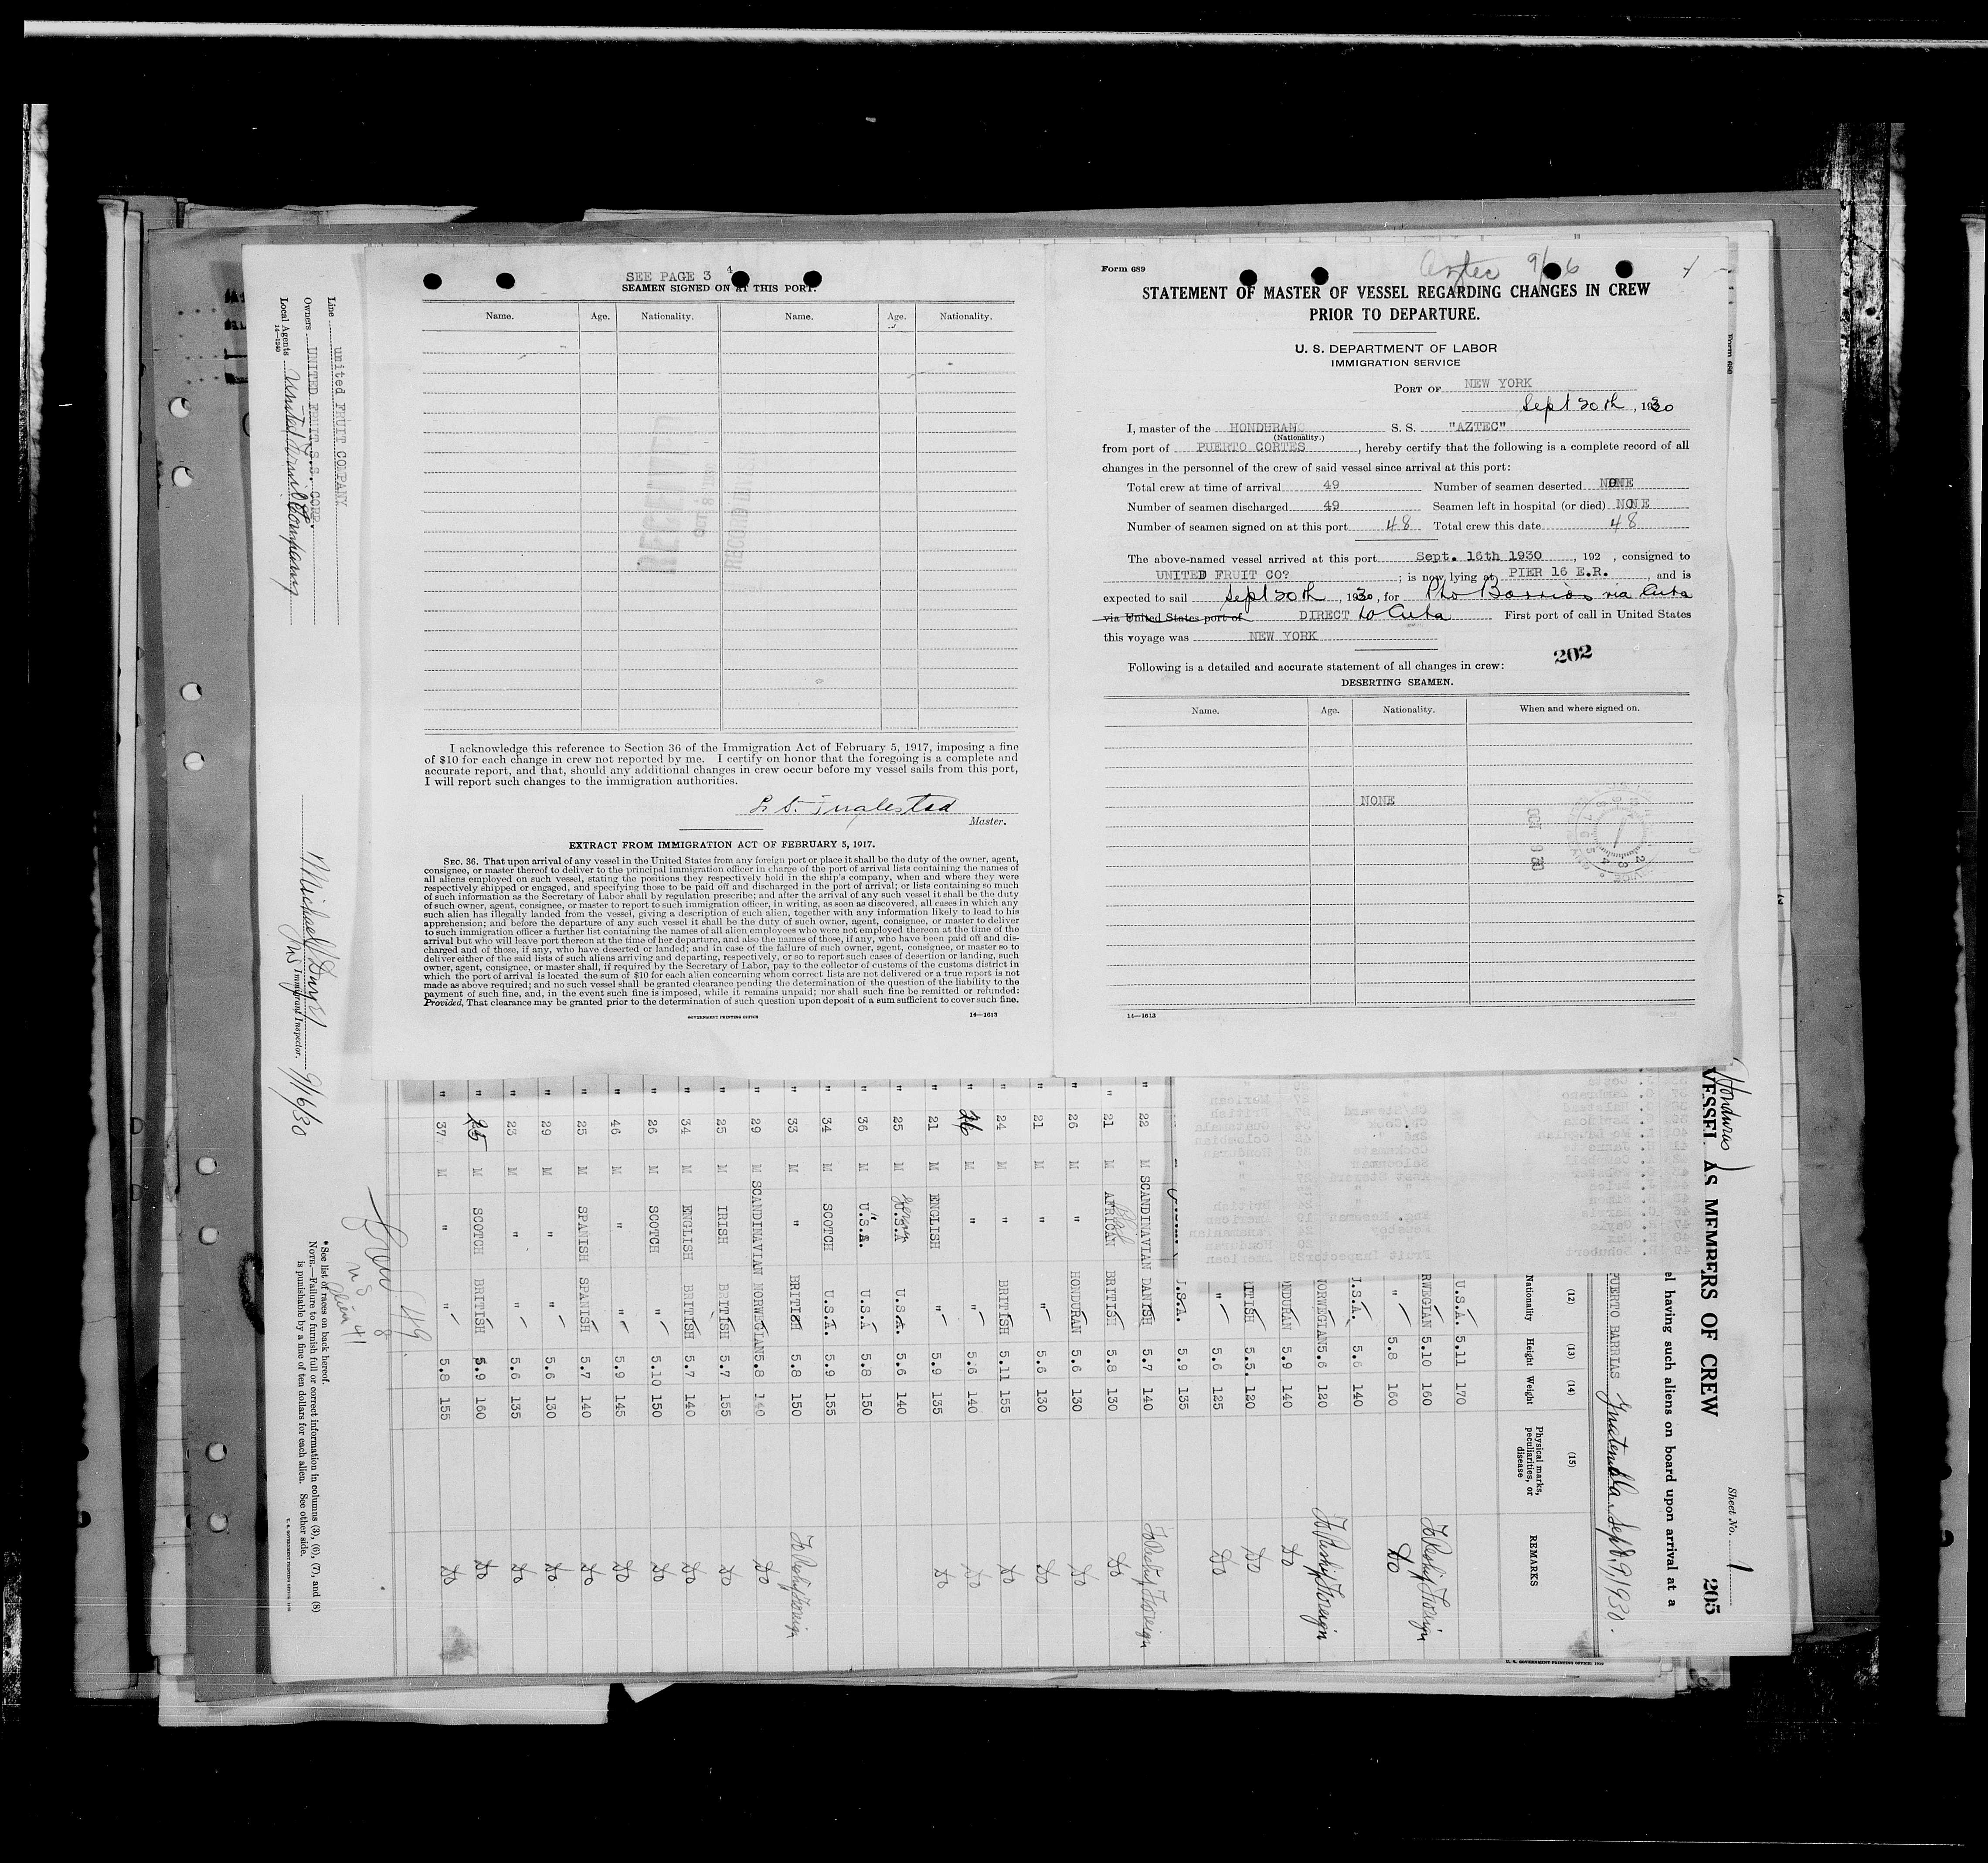 SEE PAGE 3 4
SEAMEN SIGNED ON AT THIS PORT.
Name. Age. Nationality. Name. Age. Nationality.
RECEIVED
OCT 8 1930
I acknowledge this reference to Section 36 of the Immigration Act of February 5, 1917, imposing a fine
of $10 for each change in crew not reported by me. I certify on honor that the foregoing is a complete and
accurate report, and that, should any additional changes in crew occur before my vessel sails from this port,
I will report such changes to the immigration authorities.
Master.
EXTRACT FROM IMMIGRATION ACT OF FEBRUARY 5, 1917.
SEC. 36. That upon arrival of any vessel in the United States from any foreign port or place it shall be the duty of the owner, agent,
consignee, or master thereof to deliver to the principal immigration officer in charge of the port of arrival lists containing the names of
all aliens employed on such vessel, stating the positions they respectively hold in the ship's company, when and where they were
respectively shipped or engaged, and specifying those to be paid off and discharged in the port of arrival; or lists containing so much
of such information as the Secretary of Labor shall by regulation prescribe; and after the arrival of any such vessel it shall be the duty
of such owner, agent, consignee, or master to report to such immigration officer, in writing, as soon as discovered, all cases in which any
such alien has illegally landed from the vessel, giving a description of such alien, together with any information likely to lead to his
apprehension; and before the departure of any such vessel it shall be the duty of such owner, agent, consignee, or master to deliver
to such immigration officer a further list containing the names of all alien employees who were not employed thereon at the time of the
arrival but who will leave port thereon at the time of her departure, and also the names of those, if any, who have been paid off and dis-
charged and of those, if any, who have deserted or landed; and in case of the failure of such owner, agent, consignee, or master so to
deliver either of the said lists of such aliens arriving and departing, respectively, or so to report such cases of desertion or landing, such
owner, agent, consignee, or master shall, if required by the Secretary of Labor, pay to the collector of customs of the customs district in
which the port of arrival is located the sum of $10 for each alien concerning whom correct lists are not delivered or a true report is not
made as above required; and no such vessel shall be granted clearance pending the determination of the question of the liability to the
payment of such fine, and, in the event such fine is imposed, while it remains unpaid; nor shall such fine be remitted or refunded:
Provided, That clearance may be granted prior to the determination of such question upon deposit of a sum sufficient to cover such fine.
GOVERNMENT PRINTING OFFICE 14—1613
Form 689
Aztec 9/16
STATEMENT OF MASTER OF VESSEL REGARDING CHANGES IN CREW
PRIOR TO DEPARTURE.
U. S. DEPARTMENT OF LABOR
IMMIGRATION SERVICE
PORT OF NEW YORK
Sept 20th, 1930
I, master of the HONDURAN S. S. "AZTEC"
(Nationality.)
from port of PUERTO CORTES, hereby certify that the following is a complete record of all
changes in the personnel of the crew of said vessel since arrival at this port:
Total crew at time of arrival 49 Number of seamen deserted NONE
Number of seamen discharged 49 Seamen left in hospital (or died) NONE
Number of seamen signed on at this port 48 Total crew this date 48
The above-named vessel arrived at this port Sept. 16th 1930, 192 , consigned to
UNITED FRUIT CO?; is now lying at PIER 16 E.R., and is
expected to sail Sept 20th, 1930, for Pto Barrios via Cuba
via United States port of DIRECT to Cuba First port of call in United States
this voyage was NEW YORK
202
Following is a detailed and accurate statement of all changes in crew:
DESERTING SEAMEN.
Name. Age. Nationality. When and where signed on.
NONE
14—1613
Line United FRUIT COMPANY
Owners UNITED FRUIT S.S. CORP.
Local Agents United Fruit Company
14—1240
Immigrant Inspector. 9/16/30
* See list of races on back hereof.
NOTE.—Failure to furnish full or correct information in columns (3), (6), (7), and (8)
is punishable by a fine of ten dollars for each alien. See other side.
U. S. GOVERNMENT PRINTING OFFICE
Sheet No. 1 205
(Honduras)
VESSEL AS MEMBERS OF CREW
el having such aliens on board upon arrival at a
PUERTO BARRIAS Guatemala Sept 9, 1930.
(12) (13) (14) (15)
Nationality Height Weight Physical marks, peculiarities, or disease REMARKS
U.S.A. 5.11 170
RWEGIAN 5.10 160 To Reship Foreign
" 5.8 160 Do
.S.A. 5.6 140
NORWEGIAN 5.6 120 To Reship Foreign
NDURAN 5.9 140 Do
RITISH 5.5. 120 Do
" 5.6 125 Do
.S.A. 5.9 135
" 22 M SCANDINAVIAN DANISH 5.7 140 To Reship Foreign
" 21 M AFRICAN BRITISH 5.8 130 Do
" 26 M " HONDURAN 5.6 130 Do
" 21 M " " 5.6 130 Do
" 24 M " BRITISH 5.11 155 Do
" 26 M " " 5.6 140 Do
" 21 M ENGLISH " 5.9 135 Do
" 25 M U.S.A U.S.A. 5.6 140
" 36 M U.S.A. U.S.A 5.8 150
" 34 M SCOTCH U.S.A. 5.9 155
" 33 M " BRITISH 5.8 150 To Reship Foreign
" 29 M SCANDINAVIAN NORWEGIAN 5.8 140 Do
" 25 M IRISH BRITISH 5.7 155 Do
" 34 M ENGLISH BRITISH 5.7 140 Do
" 26 M SCOTCH " 5.10 150 Do
" 46 M " " 5.9 145 Do
" 25 M SPANISH SPANISH 5.7 140 Do
" 29 M " " 5.6 130 Do
" 23 M " " 5.6 135 Do
" 25 M SCOTCH BRITISH 5.9 160 Do
" 37 M " " 5.8 155 Do